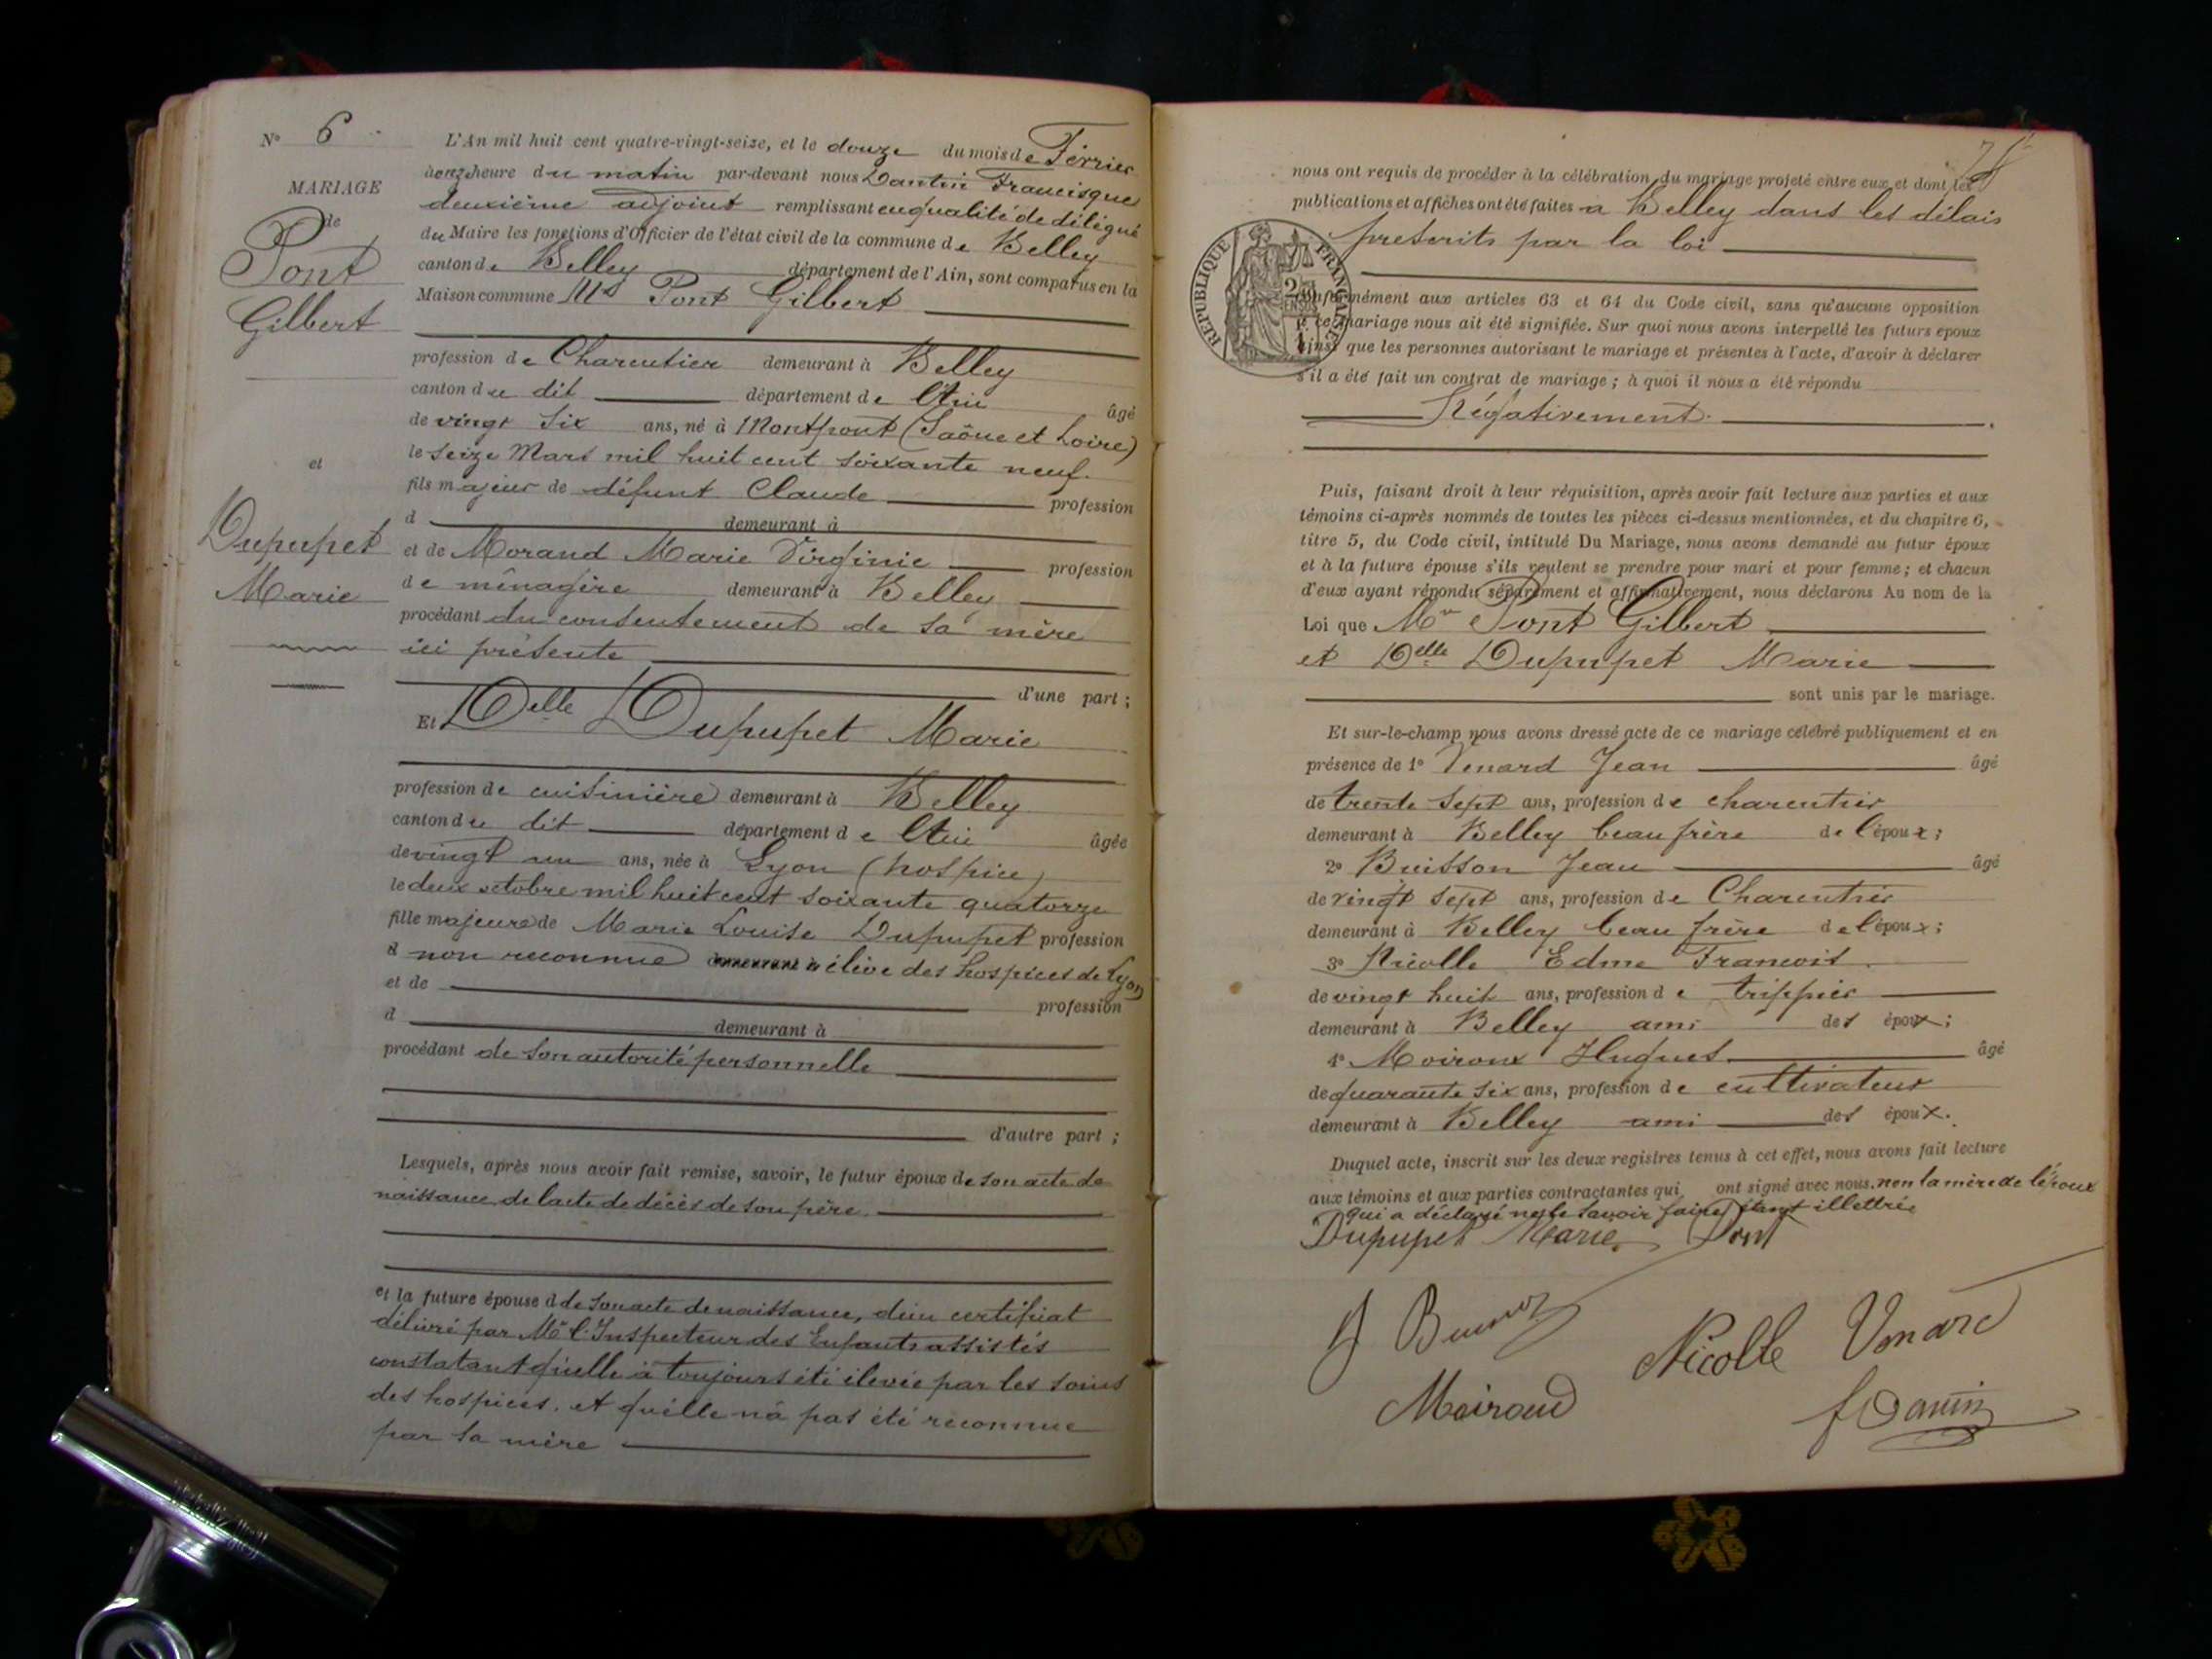 N° 6
MARIAGE
de
Pont
Gilbert
et
Dupupet
Marie
L'An mil huit cent quatre-vingt-seize, et le douze du mois de Février
à onze heure du matin par-devant nous Dantin Francisque
deuxième adjoint remplissant en qualité de délégué
du Maire les fonctions d'Officier de l'état civil de la commune de Belley
canton de Belley département de l'Ain, sont comparus en la
Maison commune Mr Pont Gilbert
profession de Charcutier demeurant à Belley
canton du dit département de l'Ain âgé
de vingt six ans, né à Montpont (Saône et Loire)
le seize Mars mil huit cent soixante neuf.
fils majeur de défunt Claude profession
d demeurant à
et de Morand Marie Virginie profession
de ménagère demeurant à Belley
procédant du consentement de sa mère
ici présente
d'une part ;
Et Delle Dupupet Marie
profession de cuisinière demeurant à Belley
canton du dit département de l'Ain âgée
de vingt un ans, née à Lyon (hospice)
le deux octobre mil huit cent soixante quatorze
fille majeure de Marie Louise Dupupet profession
d non reconnue demeurant à élève des hospices de Lyon
et de profession
d demeurant à
procédant de son autorité personnelle
d'autre part ;
Lesquels, après nous avoir fait remise, savoir, le futur époux de son acte de
naissance de l'acte de décès de son père.
et la future épouse d de son acte de naissance, d'un certificat
délivré par Mr l'Inspecteur des Enfants assistés
constatant qu'elle a toujours été élevée par les soins
des hospices, et qu'elle n'a pas été reconnue
par sa mère
nous ont requis de procéder à la célébration du mariage projeté entre eux et dont les
publications et affiches ont été faites a Belley dans les délais
prescrits par la loi
RÉPUBLIQUE FRANÇAISE
conformément aux articles 63 et 64 du Code civil, sans qu'aucune opposition
à ce mariage nous ait été signifiée. Sur quoi nous avons interpellé les futurs époux
ainsi que les personnes autorisant le mariage et présentes à l'acte, d'avoir à déclarer
s'il a été fait un contrat de mariage ; à quoi il nous a été répondu
Négativement.
Puis, faisant droit à leur réquisition, après avoir fait lecture aux parties et aux
témoins ci-après nommés de toutes les pièces ci-dessus mentionnées, et du chapitre 6,
titre 5, du Code civil, intitulé Du Mariage, nous avons demandé au futur époux
et à la future épouse s'ils veulent se prendre pour mari et pour femme ; et chacun
d'eux ayant répondu séparément et affirmativement, nous déclarons Au nom de la
Loi que Mr Pont Gilbert
et Delle Dupupet Marie
sont unis par le mariage.
Et sur-le-champ nous avons dressé acte de ce mariage célébré publiquement et en
présence de 1° Venard Jean âgé
de trente sept ans, profession de charcutier
demeurant à Belley beau frère de l'époux ;
2° Buisson Jean âgé
de vingt sept ans, profession de Charcutier
demeurant à Belley beau frère de l'époux ;
3° Nicolle Edme Francois
de vingt huit ans, profession de trippier
demeurant à Belley ami des époux ;
4° Moiroux Hugues âgé
de quarante six ans, profession de cultivateur
demeurant à Belley ami des époux.
Duquel acte, inscrit sur les deux registres tenus à cet effet, nous avons fait lecture
aux témoins et aux parties contractantes qui ont signé avec nous. non la mère de l'époux
qui a déclaré ne le savoir faire étant illettrée
Dupupet Marie Pont
Nicolle Venard
Moiroud